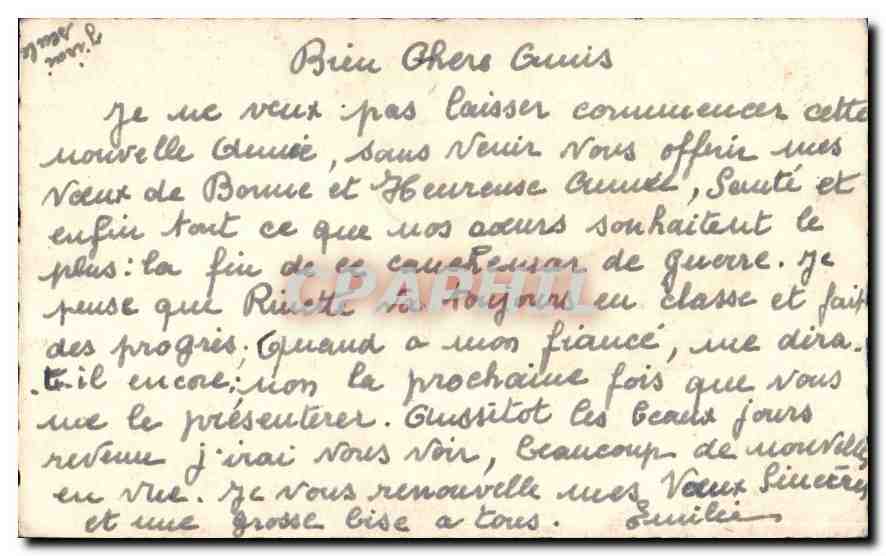 j'irai
seule
Bien Chers Amis
Je ne veux pas laisser commencer cette
nouvelle Année, sans Venir Vous offrir mes
Vœux de Bonne et Heureuse Année, Santé et
enfin tout ce que nos cœurs souhaitent le
plus: la fin de ce cauchemar de guerre. Je
pense que va toujours en classe et fait
des progrès. Quand a mon fiancé, me dira.
.t-il encore: non la prochaine fois que vous
me le présenterer. Aussitot les beaux jours
revenu j'irai vous voir, beaucoup de nouvelles
en vue. Je vous renouvelle mes Vœux Sincères
et une grosse bise a tous. Emilie
CPAPHIL